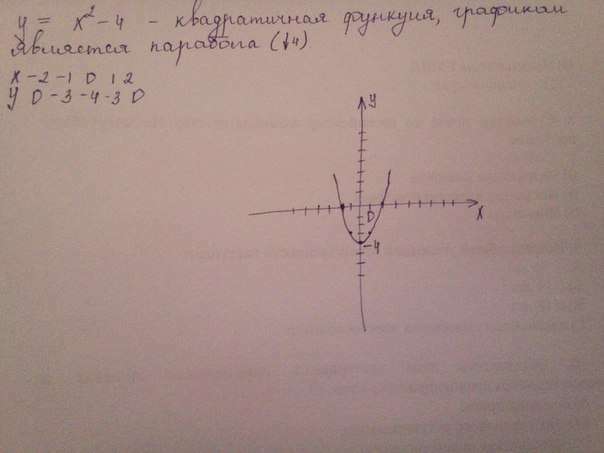 y = x² - 4 - квадратичная функция, графиком
является парабола (↓4)
x -2 -1 0 1 2
y 0 -3 -4 -3 0
y
0
x
-4